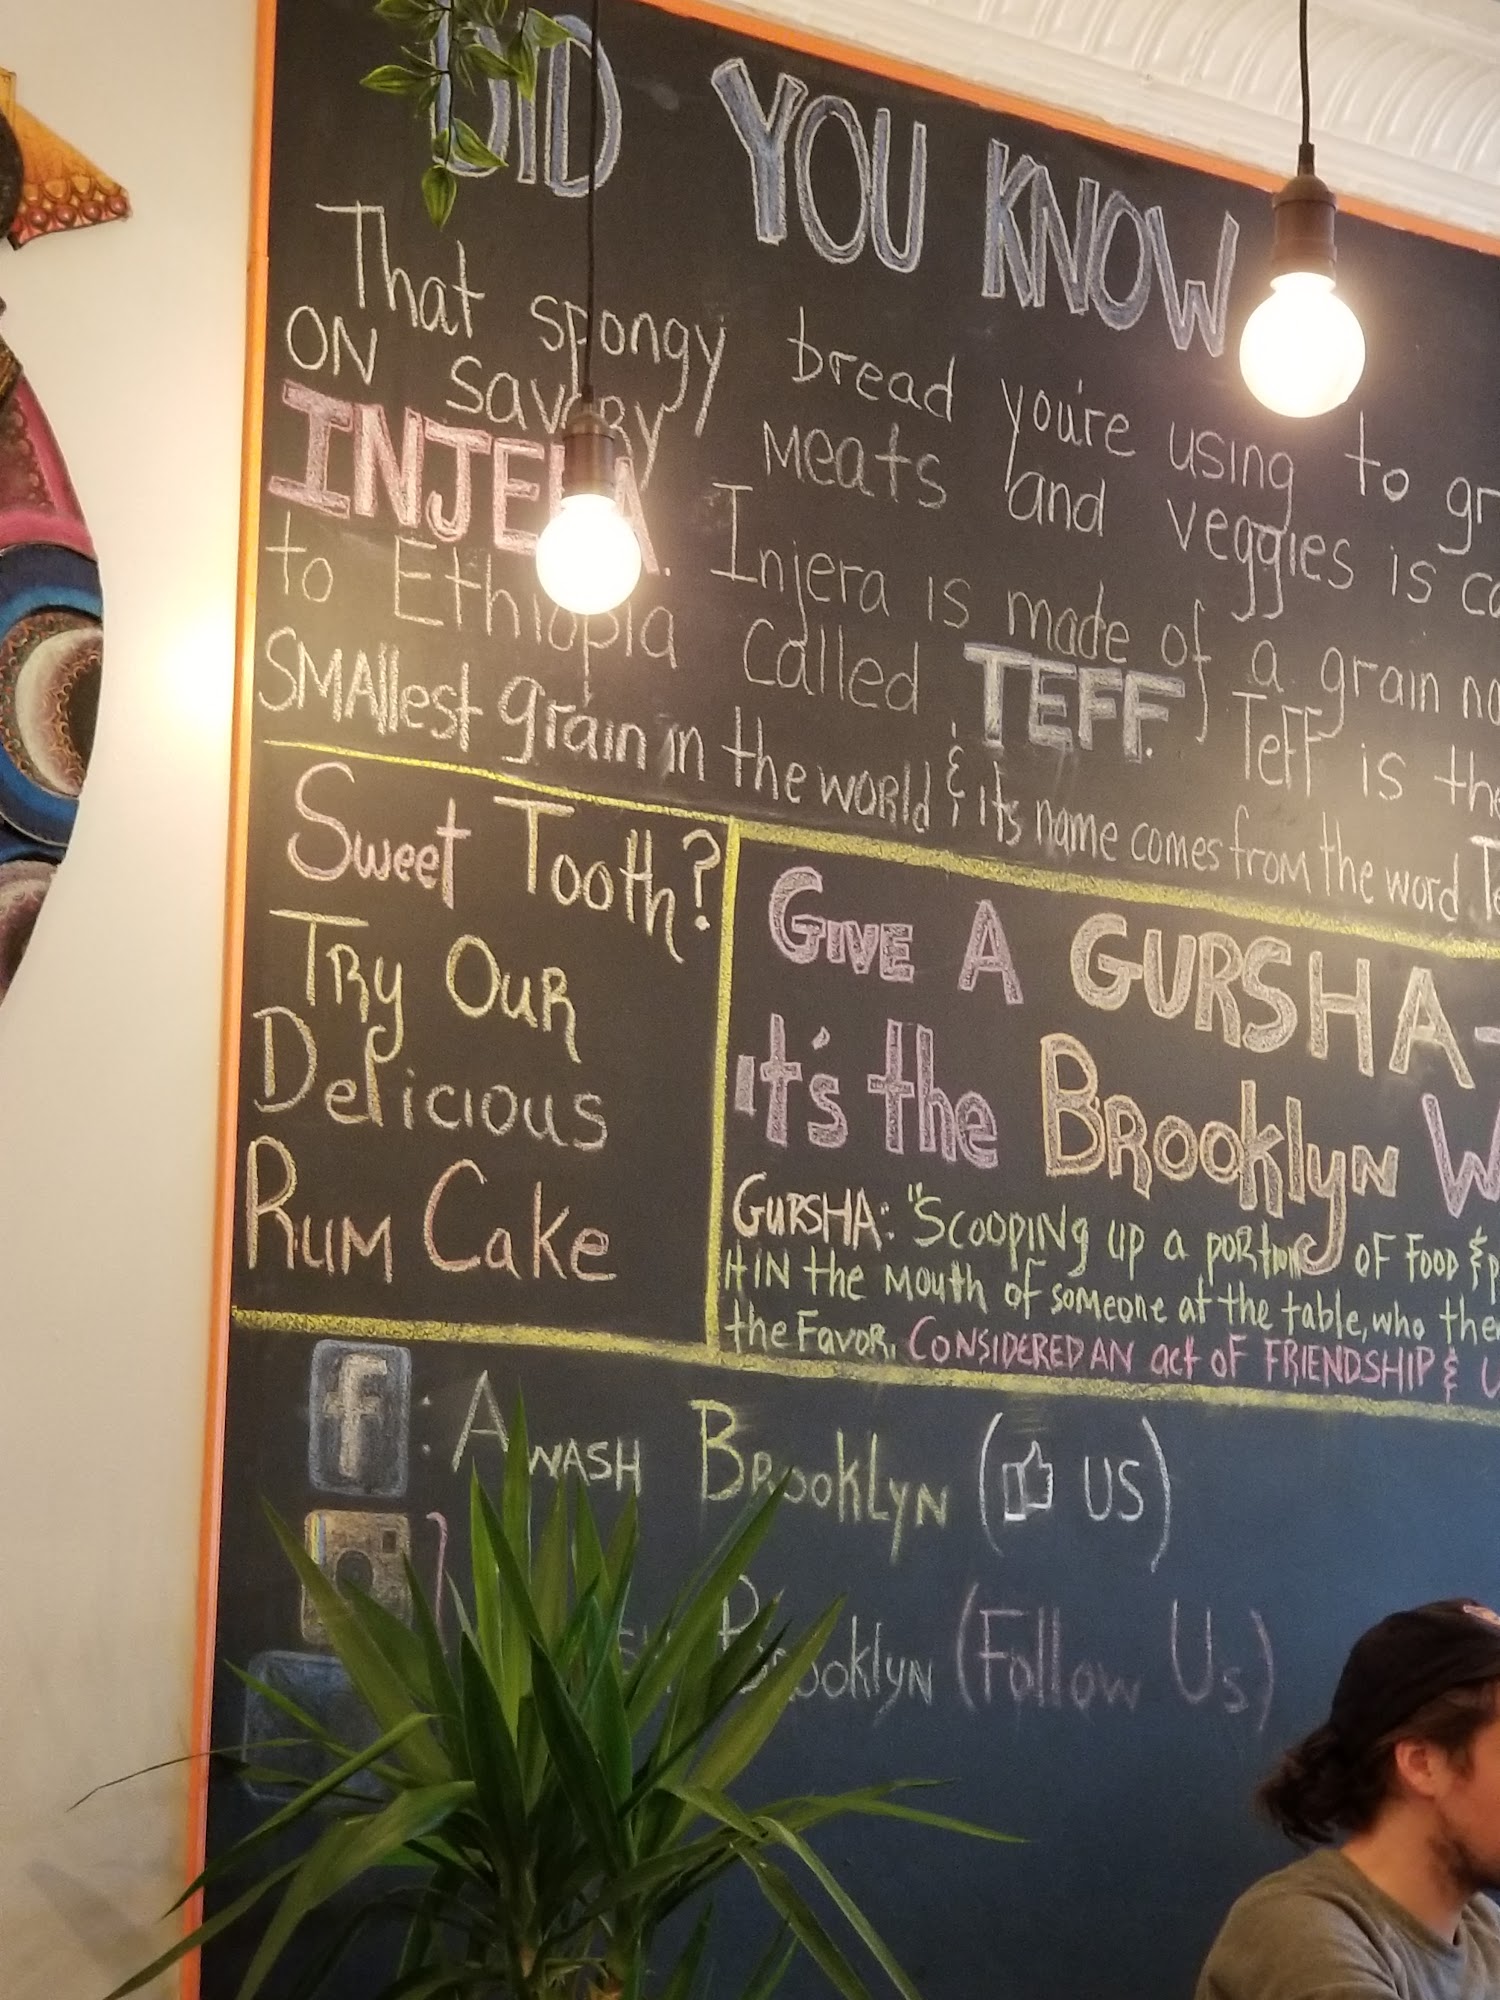 DID YOU KNOW
That spongy bread you're using to
ON savory meats and veggies is
INJERA. Injera is made of a grain
to Ethiopia called TEFF. Teff is the
SMAllest grain in the world & its name comes from the word
Sweet Tooth?
Try Our
Delicious
Rum Cake
GIVE A GURSHA-
it's the Brooklyn
GURSHA: "Scooping up a portion of food &
it in the mouth of someone at the table, who
the Favor. CONSIDERED AN act OF FRIENDSHIP &
f : Awash Brooklyn (👍 US)
Brooklyn (Follow Us)